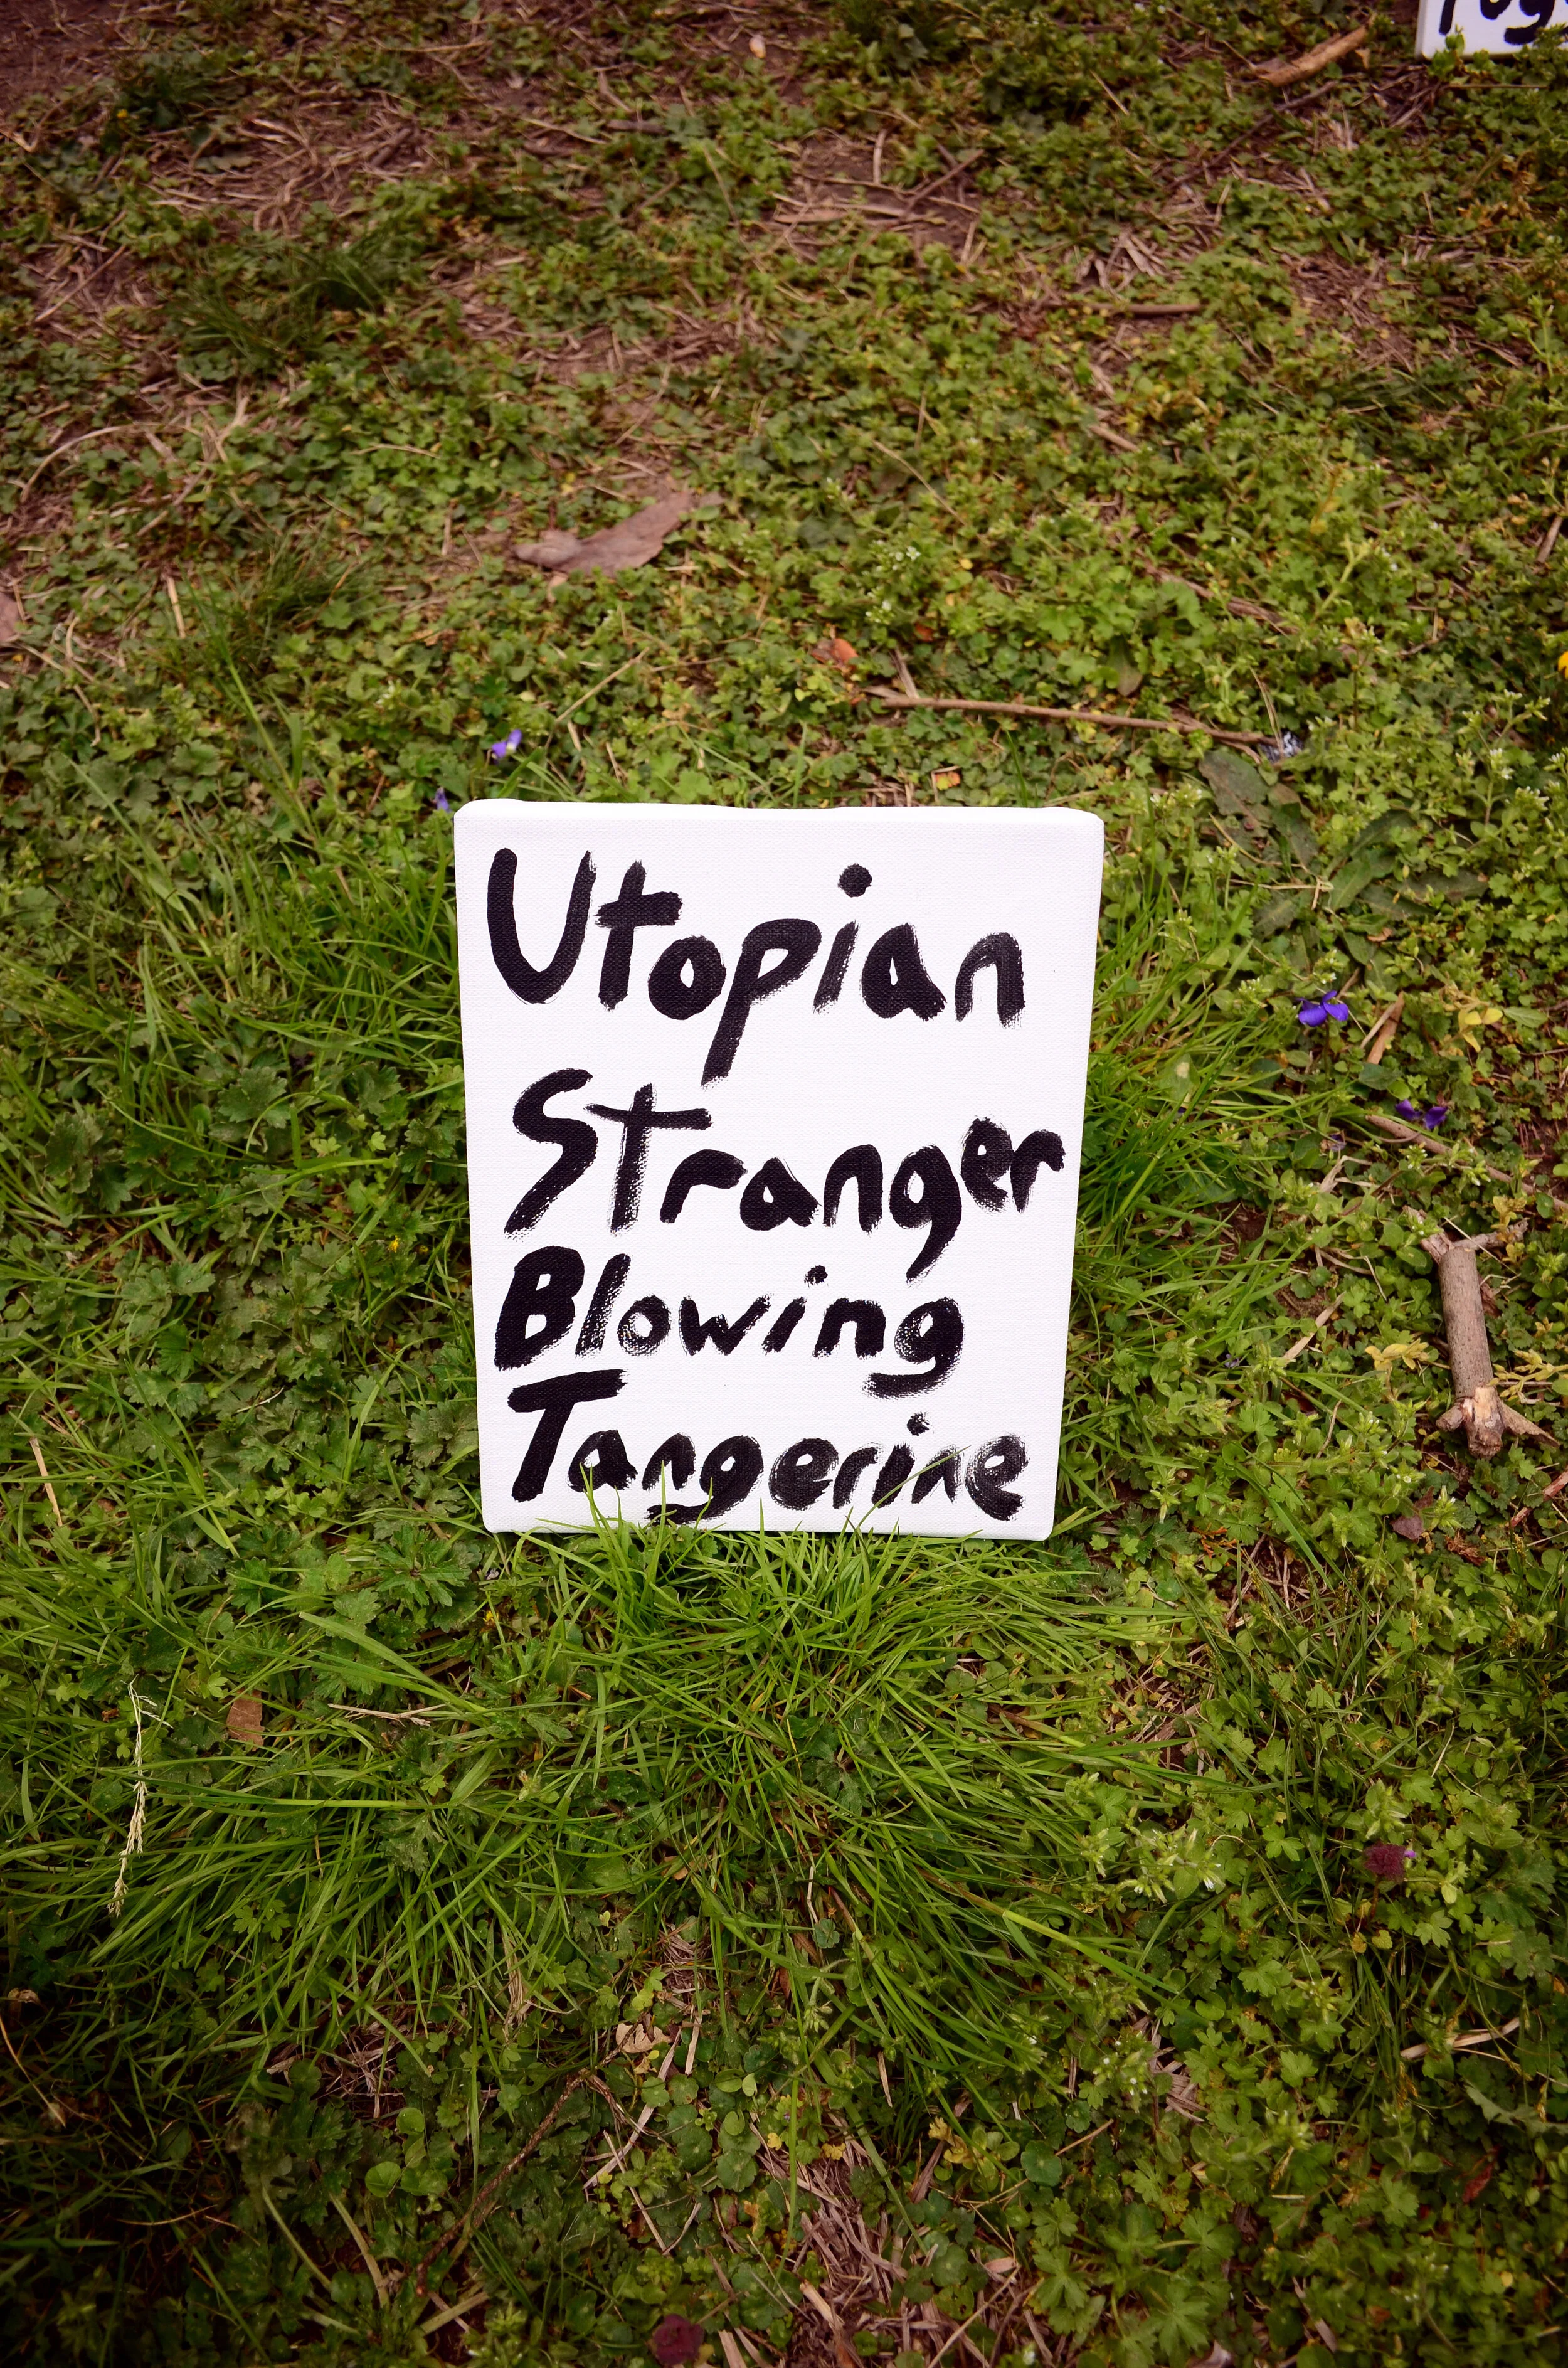 Utopian
Stranger
Blowing
Tangerine